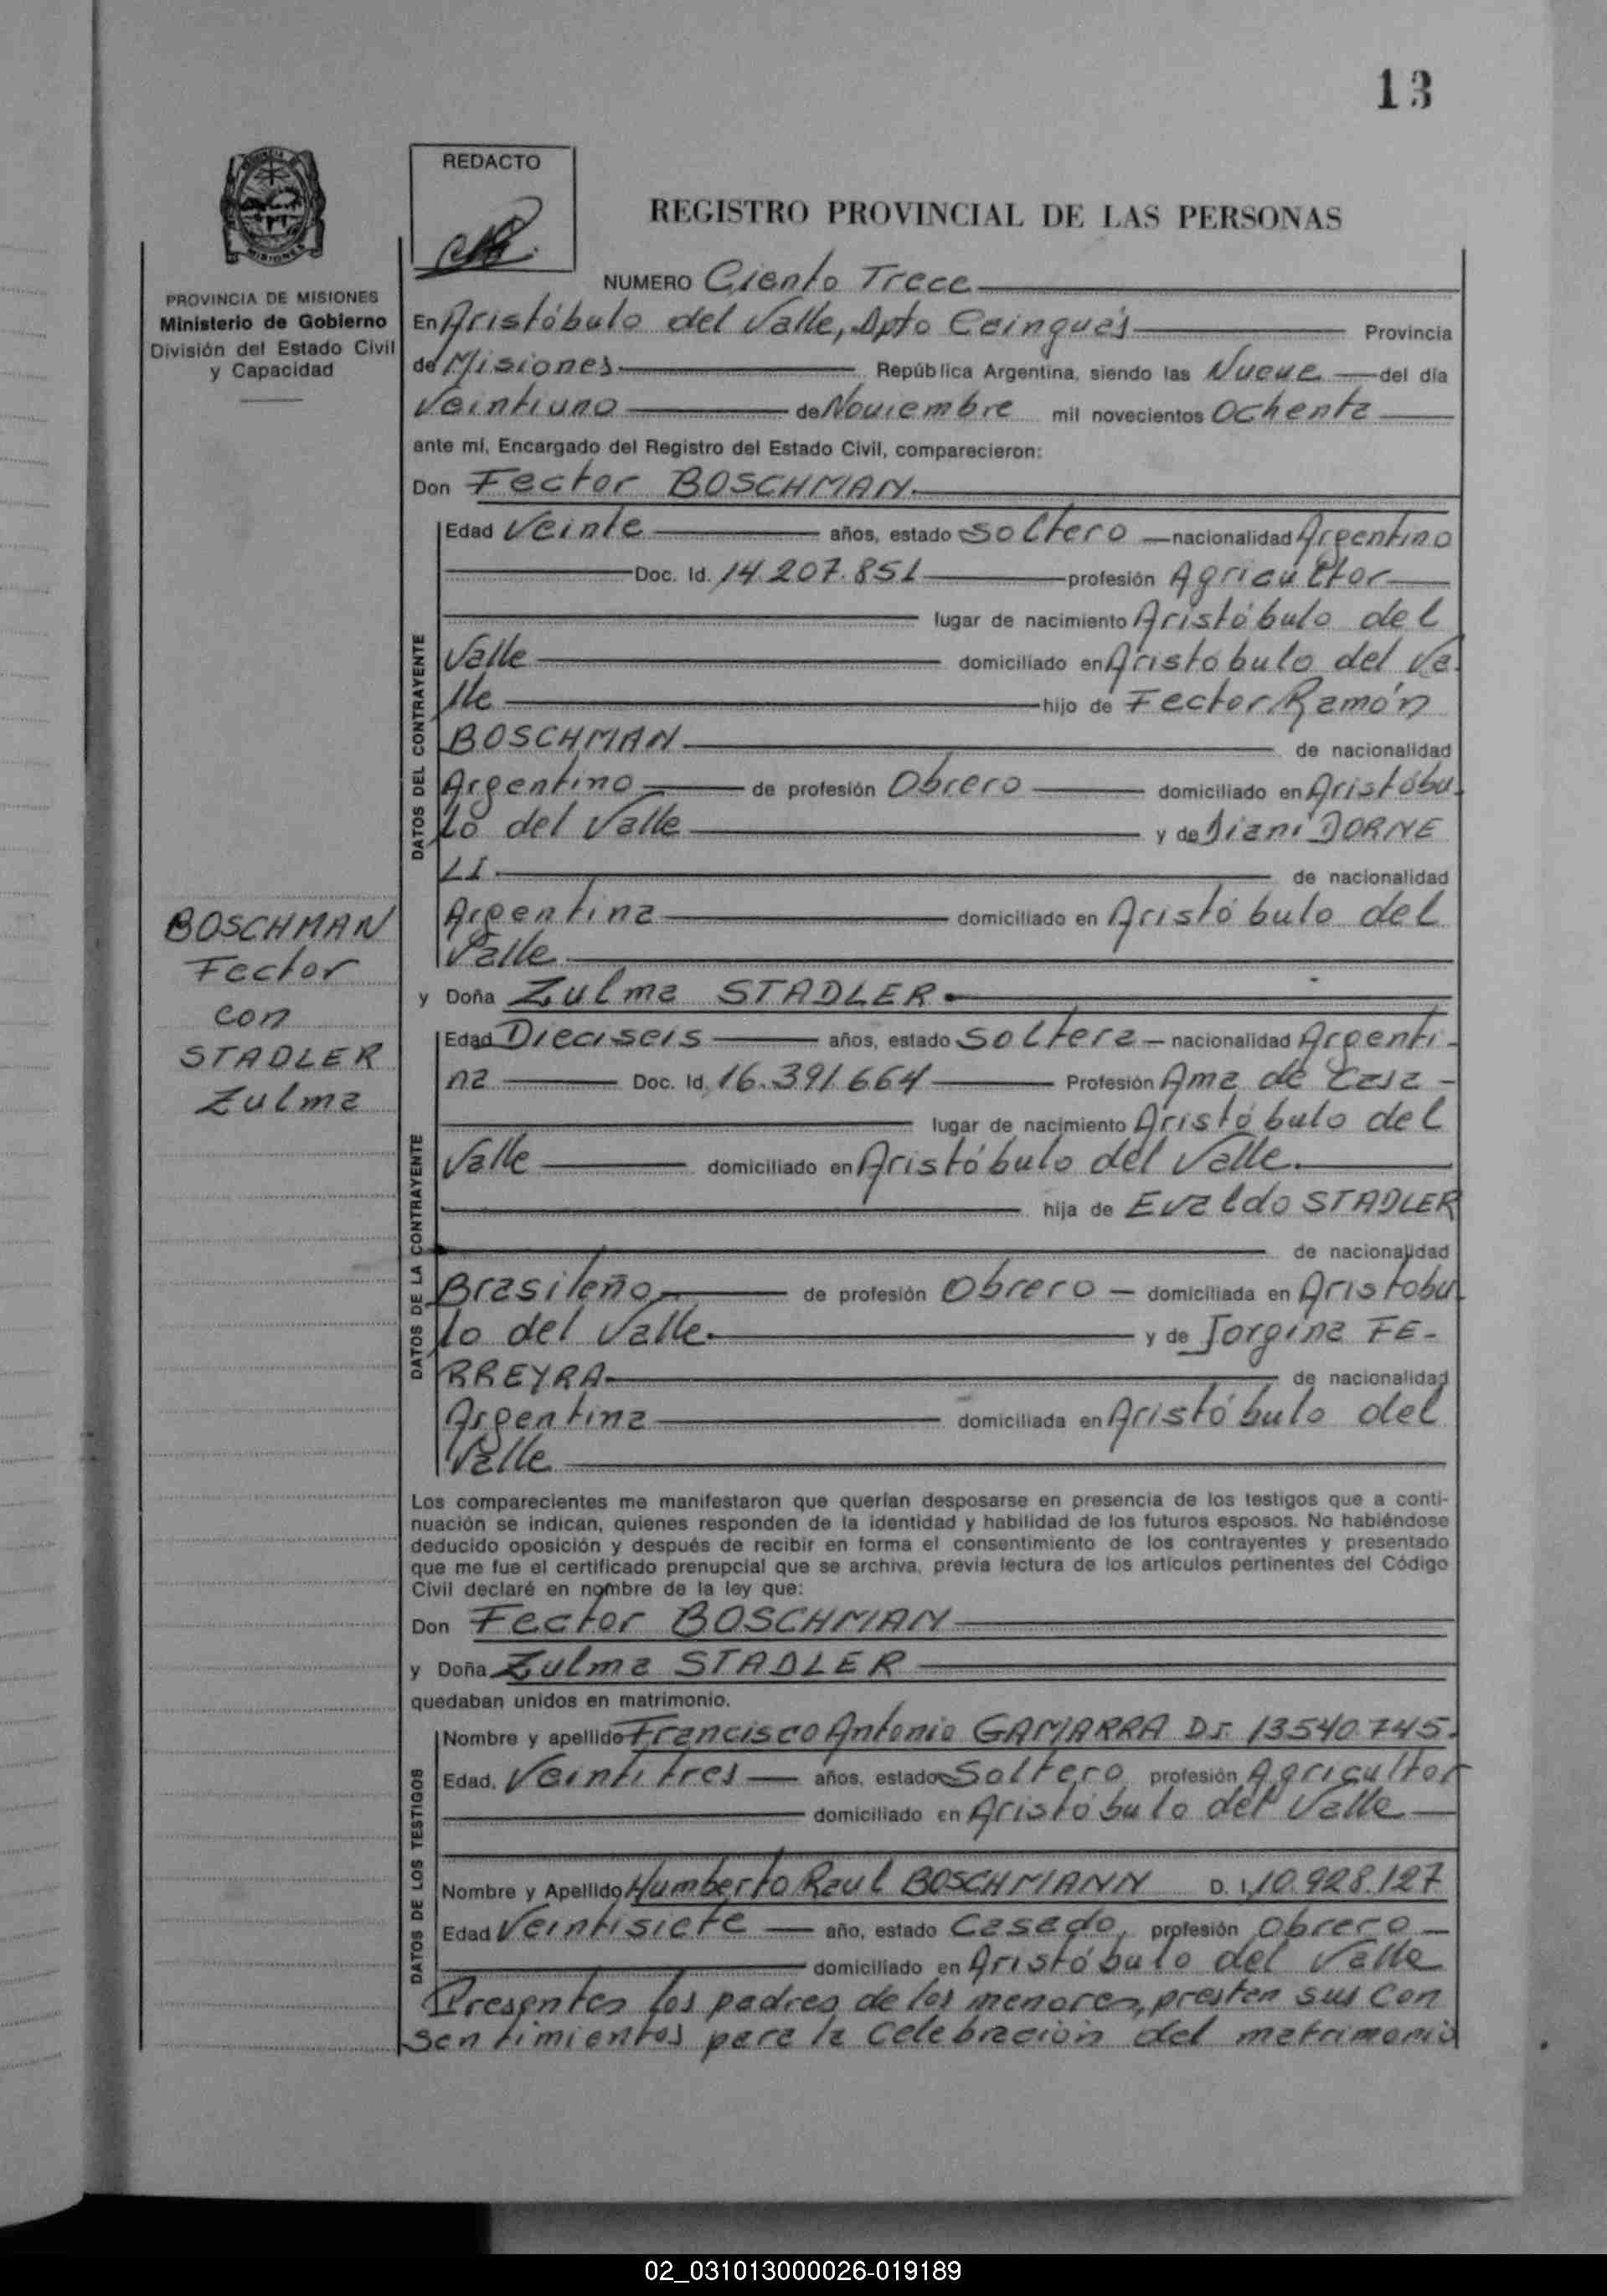 13
REDACTO
REGISTRO PROVINCIAL DE LAS PERSONAS
PROVINCIA DE MISIONES
Ministerio de Gobierno
División del Estado Civil
y Capacidad
NUMERO Ciento Trece
En Aristóbulo del Valle, Dpto Caingués Provincia
de Misiones República Argentina, siendo las Nueve del día
Veintiuno de Noviembre mil novecientos Ochenta
ante mí, Encargado del Registro del Estado Civil, comparecieron:
Don Fector BOSCHMAN
DATOS DEL CONTRAYENTE
Edad Veinte años, estado soltero nacionalidad Argentino
Doc. Id. 14.207.851 profesión Agricultor
lugar de nacimiento Aristóbulo del
Valle domiciliado en Aristobulo del Va
lle hijo de Fector Ramón
BOSCHMAN de nacionalidad
Argentino de profesión Obrero domiciliado en Aristóbu
lo del Valle y de Diani DORNE
LI de nacionalidad
Argentina domiciliado en Aristóbulo del
Valle
BOSCHMAN
Fector
con
STADLER
Zulma
y Doña Zulma STADLER
DATOS DE LA CONTRAYENTE
Edad Dieciseis años, estado soltera nacionalidad Argenti-
na Doc. Id. 16.391.664 Profesión Ama de Casa
lugar de nacimiento Aristóbulo del
Valle domiciliado en Aristóbulo del Valle.
hija de Evaldo STADLER
de nacionalidad
Brasileño de profesión Obrero domiciliada en Aristobu
lo del Valle. y de Jorgina FE-
RREYRA de nacionalidad
Argentina domiciliada en Aristóbulo del
Valle
Los comparecientes me manifestaron que querían desposarse en presencia de los testigos que a conti-
nuación se indican, quienes responden de la identidad y habilidad de los futuros esposos. No habiéndose
deducido oposición y después de recibir en forma el consentimiento de los contrayentes y presentado
que me fue el certificado prenupcial que se archiva, previa lectura de los artículos pertinentes del Código
Civil declaré en nombre de la ley que:
Don Fector BOSCHMAN
y Doña Zulma STADLER
quedaban unidos en matrimonio.
DATOS DE LOS TESTIGOS
Nombre y apellido Francisco Antonio GAMARRA D.I. 13540.745.
Edad, Veintitres años, estado Soltero profesión Agricultor
domiciliado en Aristóbulo del Valle
Nombre y Apellido Humberto Raul BOSCHMANN D. I. 10.928.127
Edad Veintisiete año, estado Casado, profesión Obrero
domiciliado en Aristóbulo del Valle
Presentes los padres de los menores, prestan sus con
sentimientos para la celebración del matrimonio
02_031013000026-019189